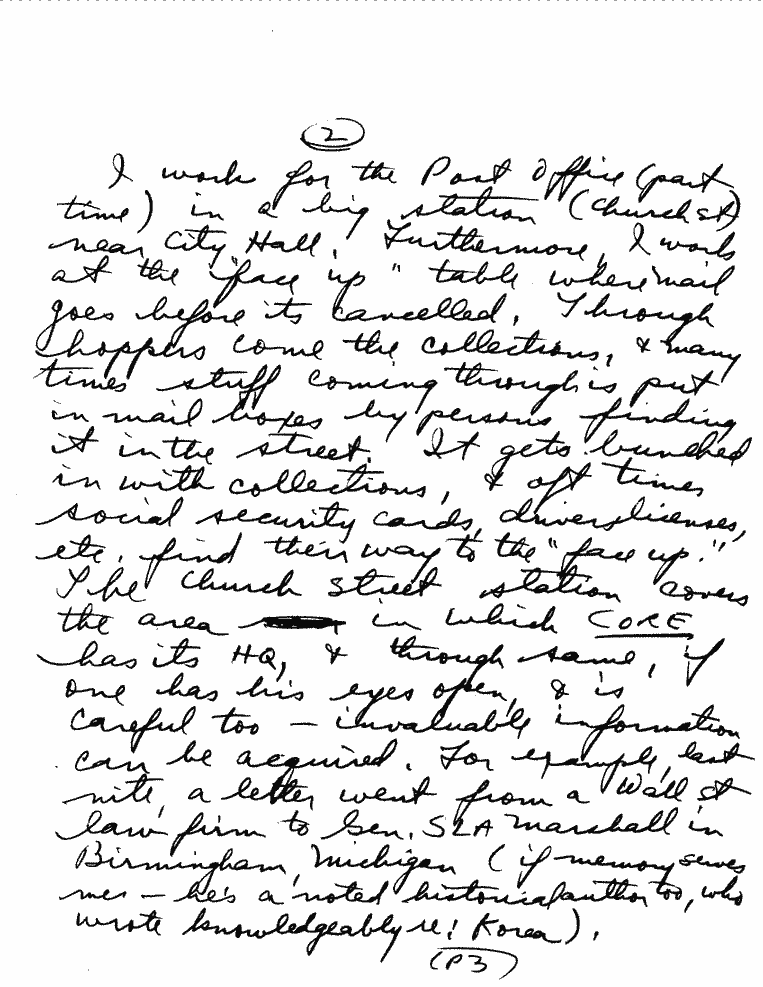 2
I work for the Post Office (part
time) in a big station (Church st)
near City Hall. Furthermore, I work
at the "face up" table where mail
goes before its cancelled. Through
hoppers come the collections, & many
times stuff coming through is put
in mail boxes by persons finding
it in the street. It gets bunched
in with collections, & oft times
social security cards, drivers licenses,
etc. find their way to the "face up."
The Church Street station covers
the area in which CORE
has its HQ, & through same, if
one has his eyes open, & is
careful too – invaluable information
can be acquired. For example, last
nite, a letter went from a Wall St
law firm to Gen. SLA Marshall in
Birmingham, Michigan (if memory serves
me – he's a noted historical author too, who
wrote knowledgeably re: Korea).
(P3)